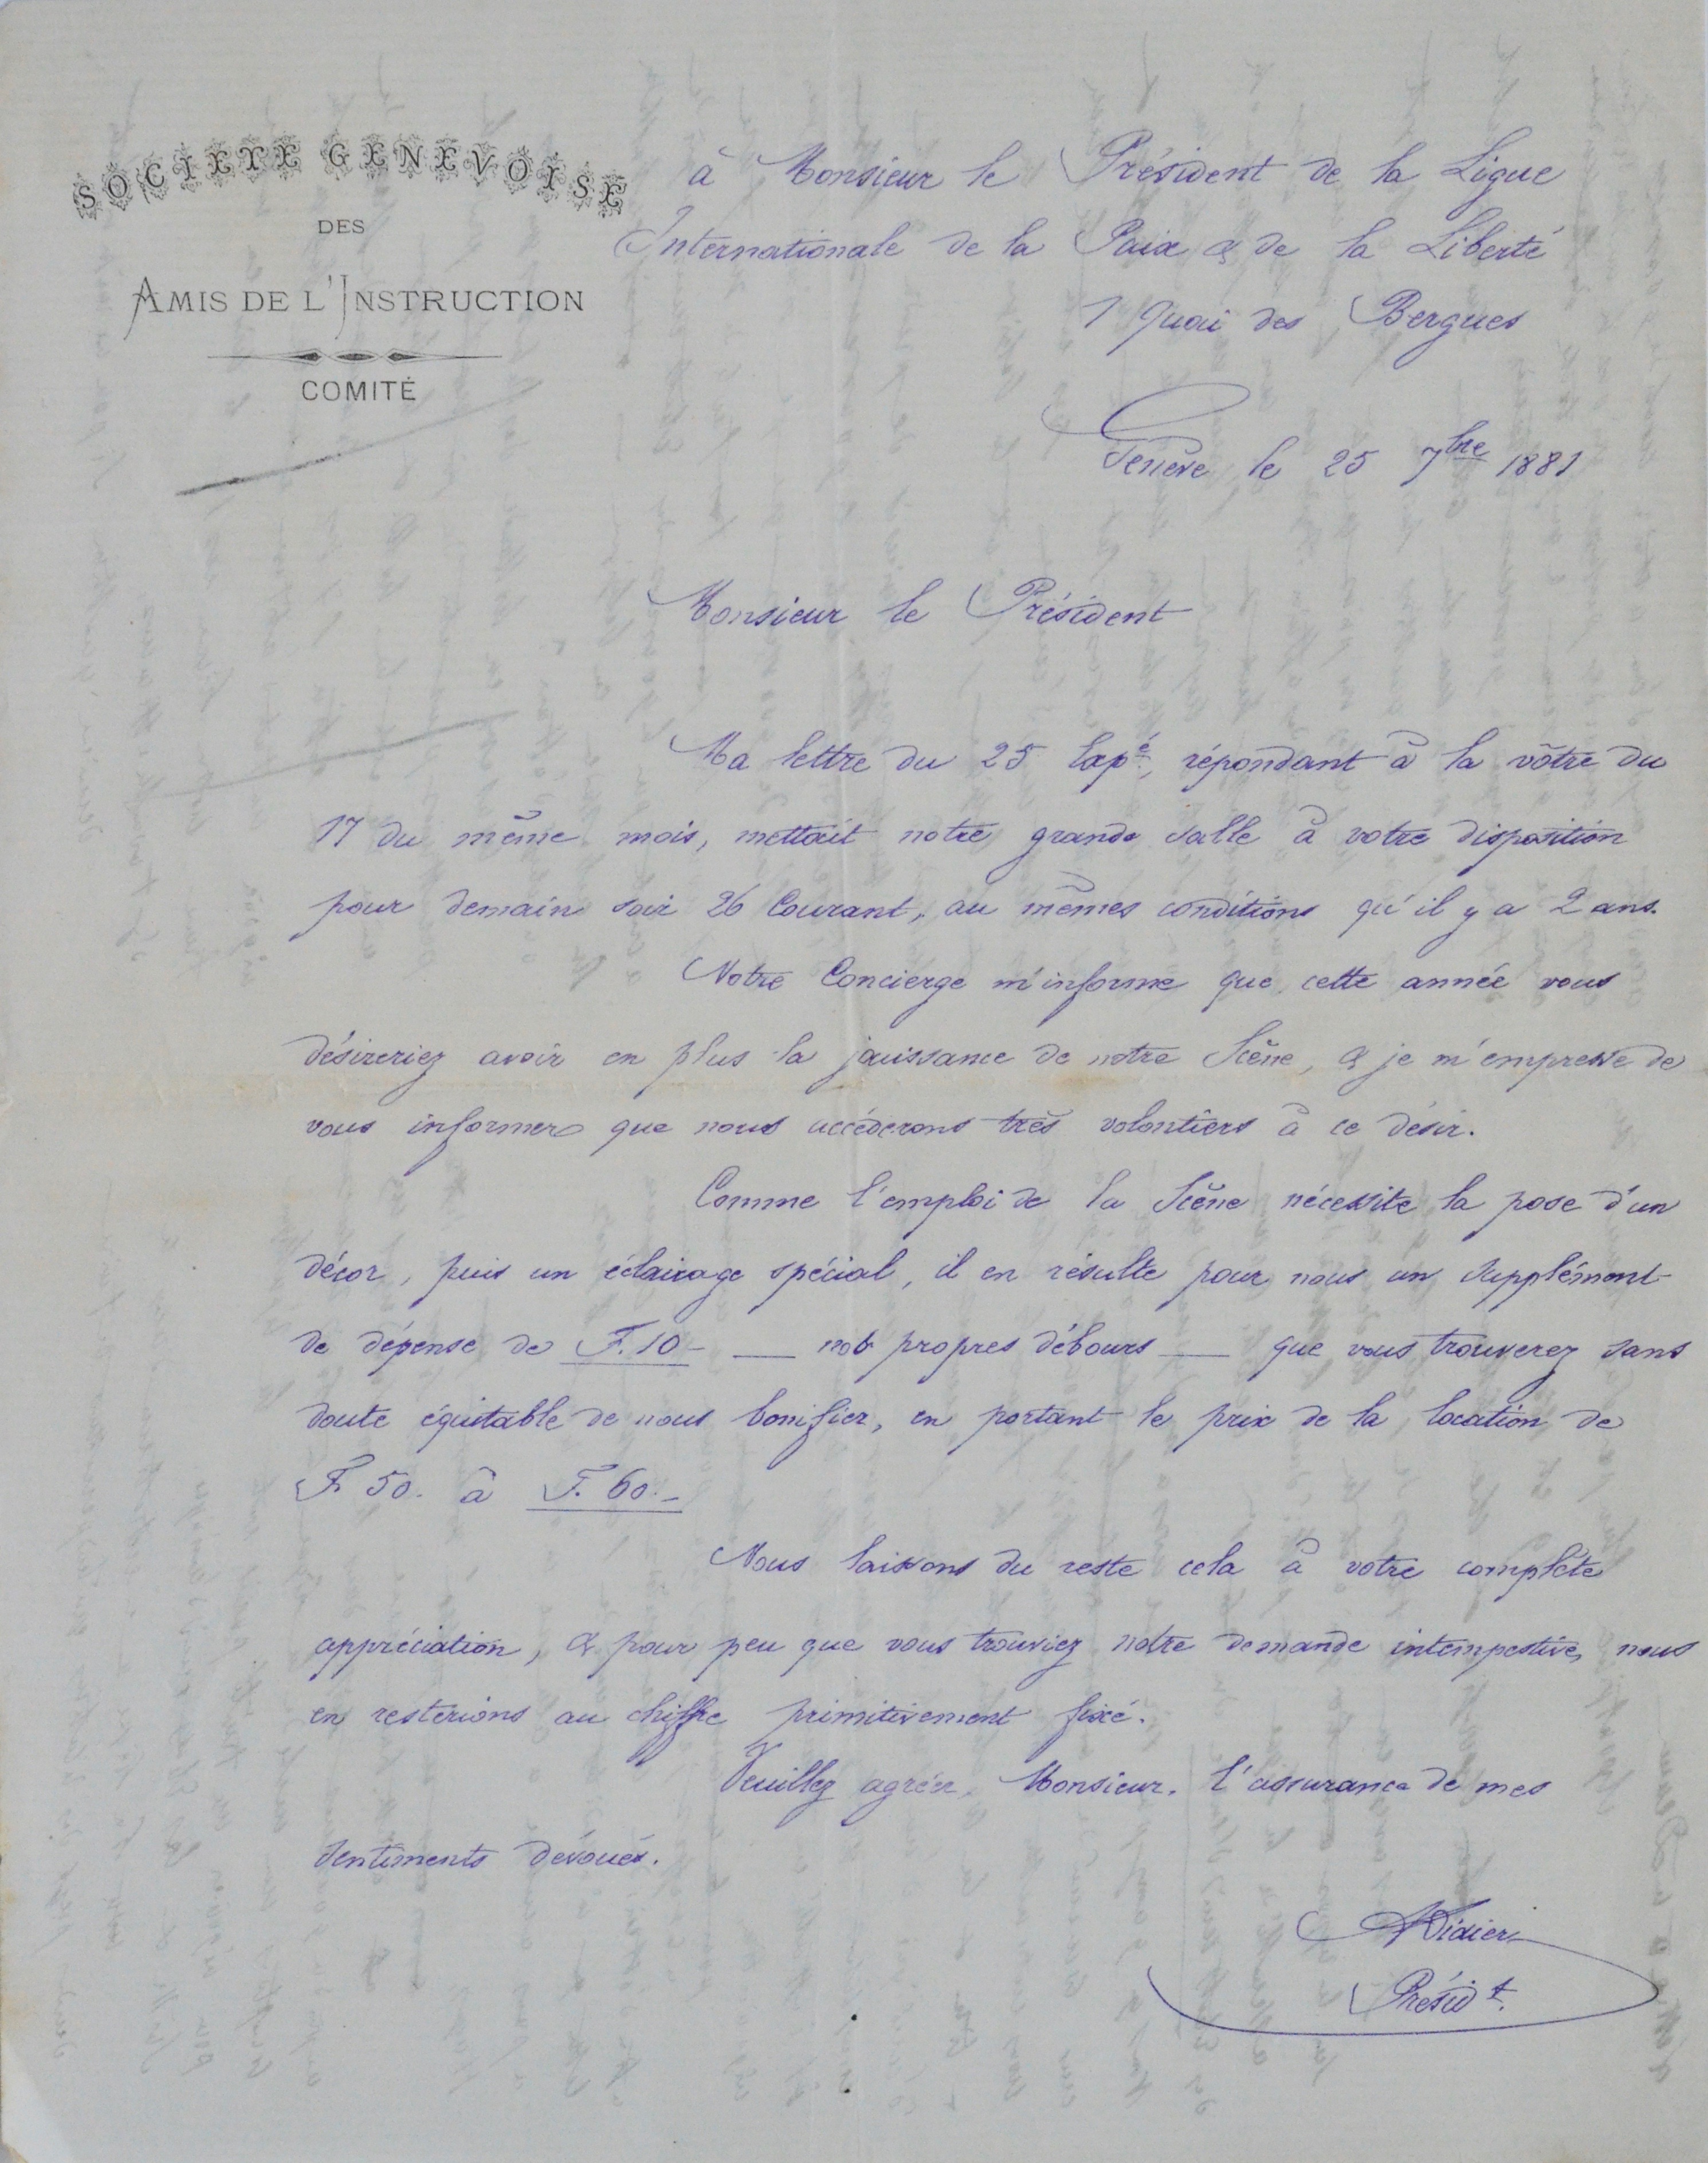 SOCIETE GENEVOISE
DES
AMIS DE L'INSTRUCTION
COMITÉ
à Monsieur le Président de la Ligue
Internationale de la Paix & de la Liberté
1 Quai des Bergues
Genève le 25 7bre 1881
Monsieur le Président
Ma lettre du 25 répondant à la vôtre du
17 du même mois, mettait notre grande salle à votre disposition
pour demain soir 26 Courant, au mêmes conditions qu'il y a 2 ans.
Notre Concierge m'informe que cette année vous
désireriez avoir en plus la jouissance de notre Scène, & je m'empresse de
vous informer que nous accéderons très volontiers à ce désir.
Comme l'emploi de la Scène nécessite la pose d'un
décor, puis un éclairage spécial, il en résulte pour nous un supplément
de dépense de F. 10 - — nos propres débours — que vous trouverez sans
doute équitable de nous bonifier, en portant le prix de la location de
F. 50. à F. 60.-
Nous laissons du reste cela à votre complète
appréciation, & pour peu que vous trouviez notre demande intempestive, nous
en resterions au chiffre primitivement fixé.
Veuillez agréer, Monsieur, l'assurance de mes
sentiments dévoués.
Didier
Présidt.